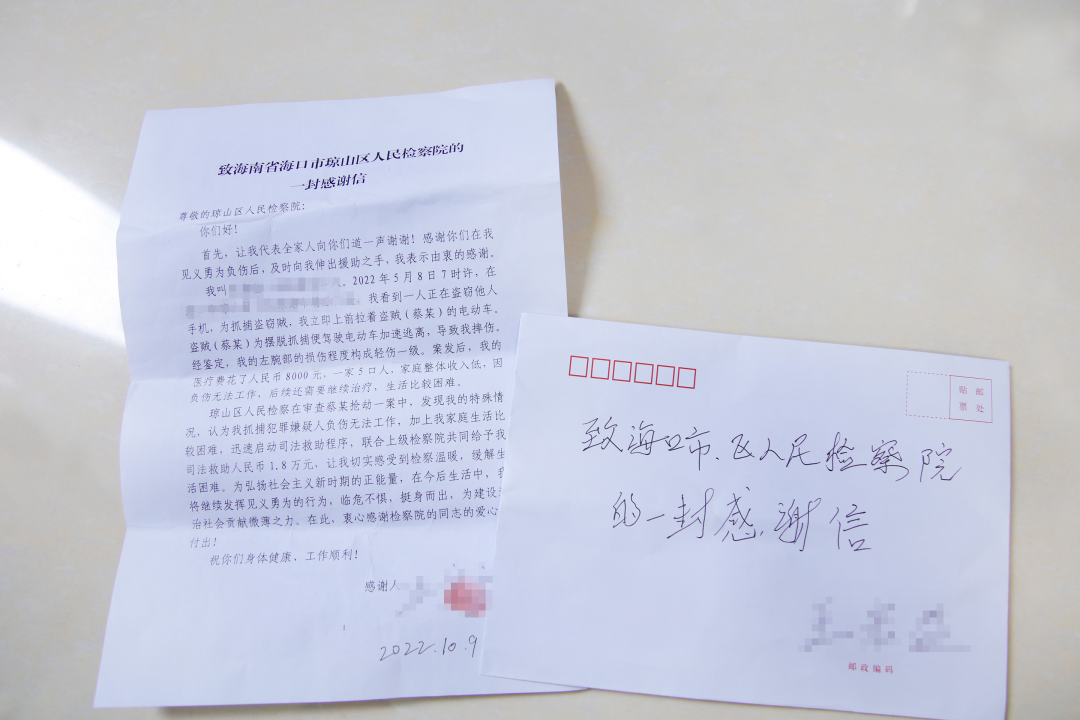 致海南省海口市琼山区人民检察院的
一封感谢信
尊敬的琼山区人民检察院：
你们好！
首先，让我代表全家人向你们道一声谢谢！感谢你们在我
见义勇为负伤后，及时向我伸出援助之手，我表示由衷的感谢。
我叫 。2022年5月8日7时许，在
，我看到一人正在盗窃他人
手机，为抓捕盗窃贼，我立即上前拉着盗贼（蔡某）的电动车。
盗贼（蔡某）为摆脱抓捕便驾驶电动车加速逃离，导致我摔伤。
经鉴定，我的左腕部的损伤程度构成轻伤一级。案发后，我的
医疗费花了人民币8000元，一家5口人，家庭整体收入低，因
负伤无法工作，后续还需要继续治疗，生活比较困难。
琼山区人民检察在审查蔡某抢劫一案中，发现我的特殊情
况，认为我抓捕犯罪嫌疑人负伤无法工作，加上我家庭生活比
较困难，迅速启动司法救助程序，联合上级检察院共同给予我
司法救助人民币1.8万元，让我切实感受到检察温暖，缓解生
活困难。为弘扬社会主义新时期的正能量，在今后生活中，我
将继续发挥见义勇为的行为，临危不惧，挺身而出，为建设
治社会贡献微薄之力。在此，衷心感谢检察院的同志的爱心
付出！
祝你们身体健康、工作顺利！
感谢人
2022.10.9
贴 邮
票 处
致海口市、区人民检察院
的一封感谢信
邮政编码